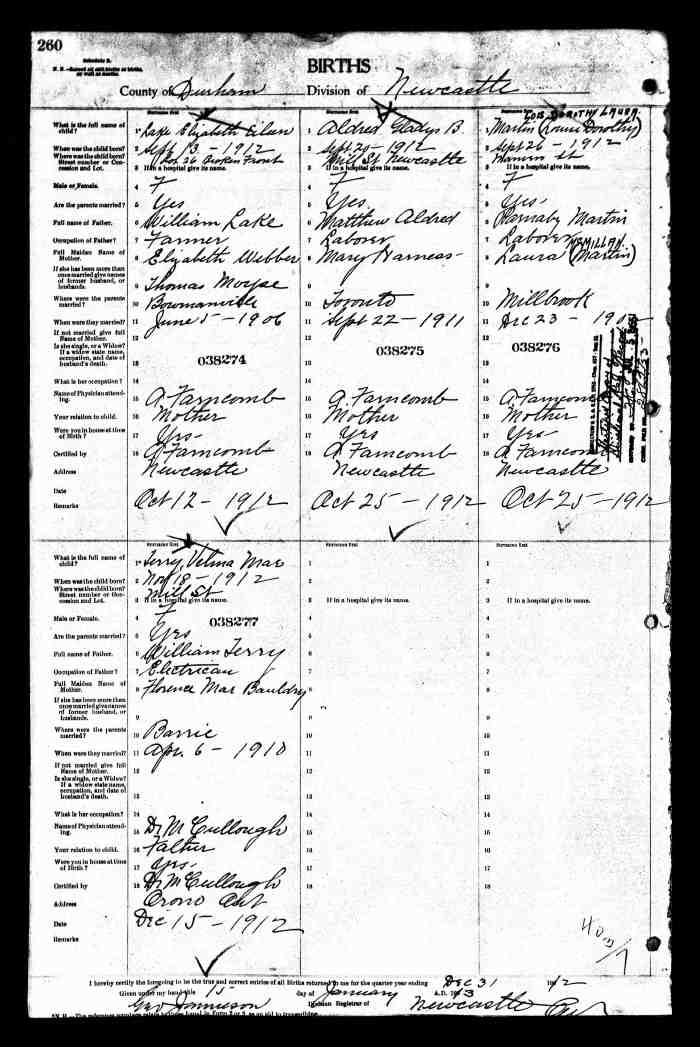 260
Schedule B.
BIRTHS
County of Durham Division of Newcastle
Surname first Surname first Surname first
LOIS DOROTHY LAURA
What is the full name of child? 1 Lake Elizabeth Eileen 1 Aldred Gladys B. 1 Martin (Dorothy)
When was the child born? 2 Sept 13-1912 2 Sept 20-1912 2 Sept 26-1912
Where was the child born? Street number or Concession and Lot. Lot 26 Broken Front Mill St Newcastle
3 If in a hospital give its name. 3 If in a hospital give its name. 3 If in a hospital give its name.
Male or Female. 4 F 4 F 4 F
Are the parents married? 5 Yes 5 Yes. 5 Yes-
Full name of Father. 6 William Lake 6 Matthew Aldred 6 Barnaby Martin
Occupation of Father? 7 Farmer 7 Laborer 7 Laborer
McMILLAN.
Full Maiden Name of Mother. 8 Elizabeth Webber 8 Mary Harness- 8 Laura (Martin)
If she has been more than once married give names of former husband, or husbands. 9 Thomas Moyse 9 9
Where were the parents married? 10 Bowmanville 10 Toronto 10 Millbrook
When were they married? 11 June 5-1906 11 Sept 22-1911 11 Dec 23-
If not married give full Name of Mother. 12 12 12
Is she single, or a Widow? If a widow state name, occupation, and date of husband's death. 13 13 13
038274 038275 038276
What is her occupation? 14 14 14
Name of Physician attending. 15 A. Farncomb 15 A. Farncomb 15 A. Farncomb
Your relation to child. 16 Mother 16 Mother 16 Mother
Were you in house at time of Birth? 17 Yes- 17 Yes 17 Yes-
Certified by 18 A Farncomb 18 A Farncomb 18 A Farncomb
Address Newcastle Newcastle Newcastle
Date
Remarks Oct 12-1912 Oct 25-1912 Oct 25-1912
Surname first Surname first Surname first
What is the full name of child? 1 Terry, Velma Mae 1 1
When was the child born? 2 Nov 18-1912 2 2
Where was the child born? Street number or Concession and Lot. Mill St
3 If in a hospital give its name. 3 If in a hospital give its name. 3 If in a hospital give its name.
Male or Female. 4 F 038277 4 4
Are the parents married? 5 Yes 5 5
Full name of Father. 6 William Terry 6 6
Occupation of Father? 7 Electrican 7 7
Full Maiden Name of Mother. 8 Florence Mae Bauldry 8 8
If she has been more than once married give names of former husband, or husbands. 9 9 9
Where were the parents married? 10 Barrie 10 10
When were they married? 11 Apr. 6-1910 11 11
If not married give full Name of Mother. 12 12 12
Is she single, or a Widow? If a widow state name, occupation, and date of husband's death. 13 13 13
What is her occupation? 14 14 14
Name of Physician attending. 15 Dr McCullough 15 15
Your relation to child. 16 Father 16 16
Were you in house at time of Birth? 17 Yes- 17 17
Certified by 18 Dr McCullough 18 18
Address Orono Ont
Date Dec 15-1912
Remarks
I hereby certify the foregoing to be the true and correct entries of all Births returned to me for the quarter year ending Dec 31 1912
Given under my hand this 15 day of January A.D. 1913
Geo Jamieson Division Registrar of Newcastle